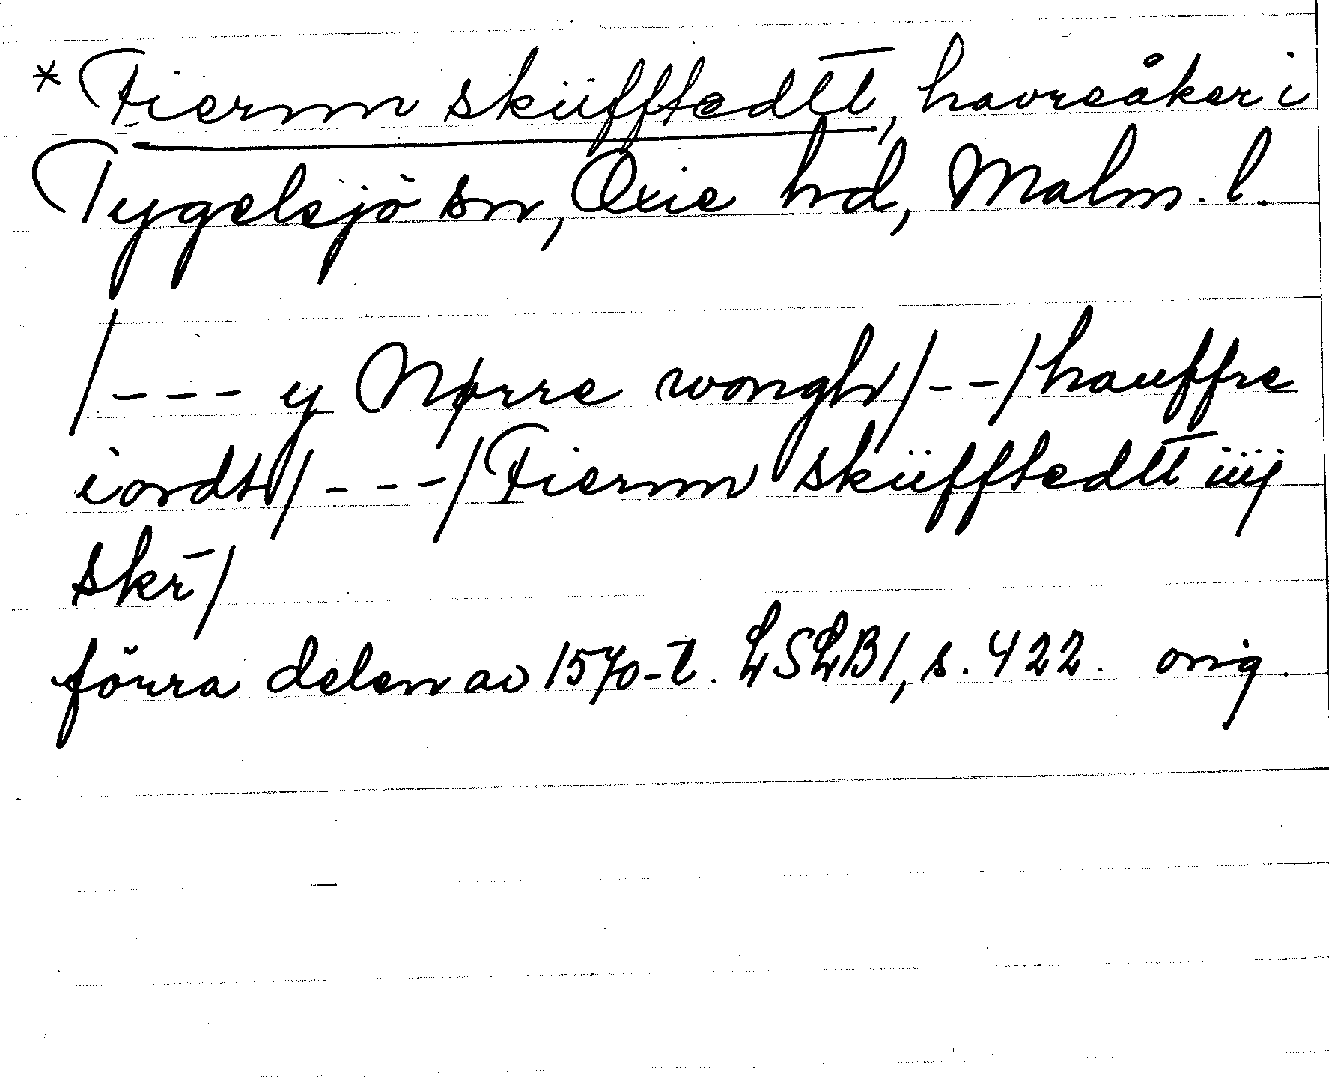 * Fiernn sküfftedtt, havreåker i
Tygelsjö sn, Oxie hd, Malm. l.
/--- y Nørre wongh/--/hauffre
iordt/---/Fiernn sküfftedtt iiij
skr̄/
förra delen av 1570-t. LSLB1, s. 422. orig.